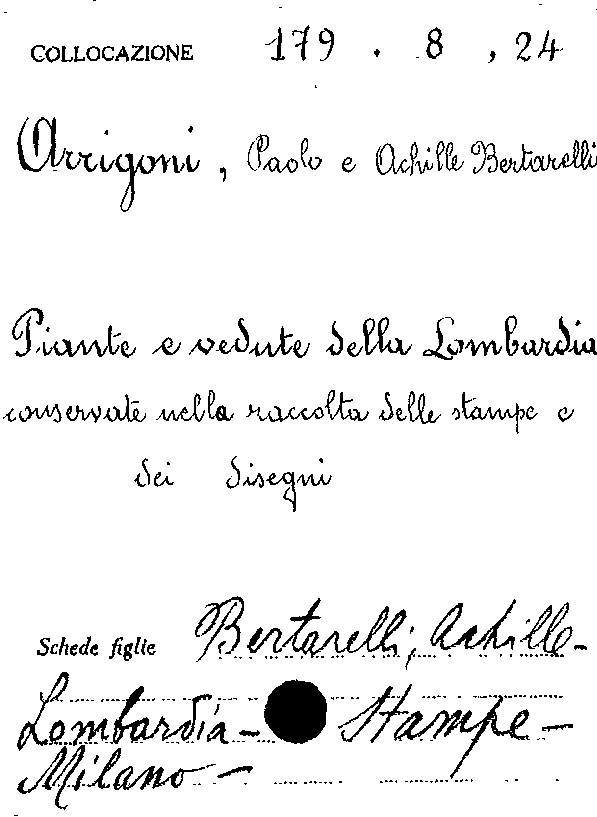 COLLOCAZIONE 179 . 8 , 24
Arrigoni, Paolo e Achille Bertarelli
Piante e vedute della Lombardia
conservate nella raccolta delle stampe e
dei disegni
Schede figlie Bertarelli, Achille -
Lombardia - Stampe -
Milano -